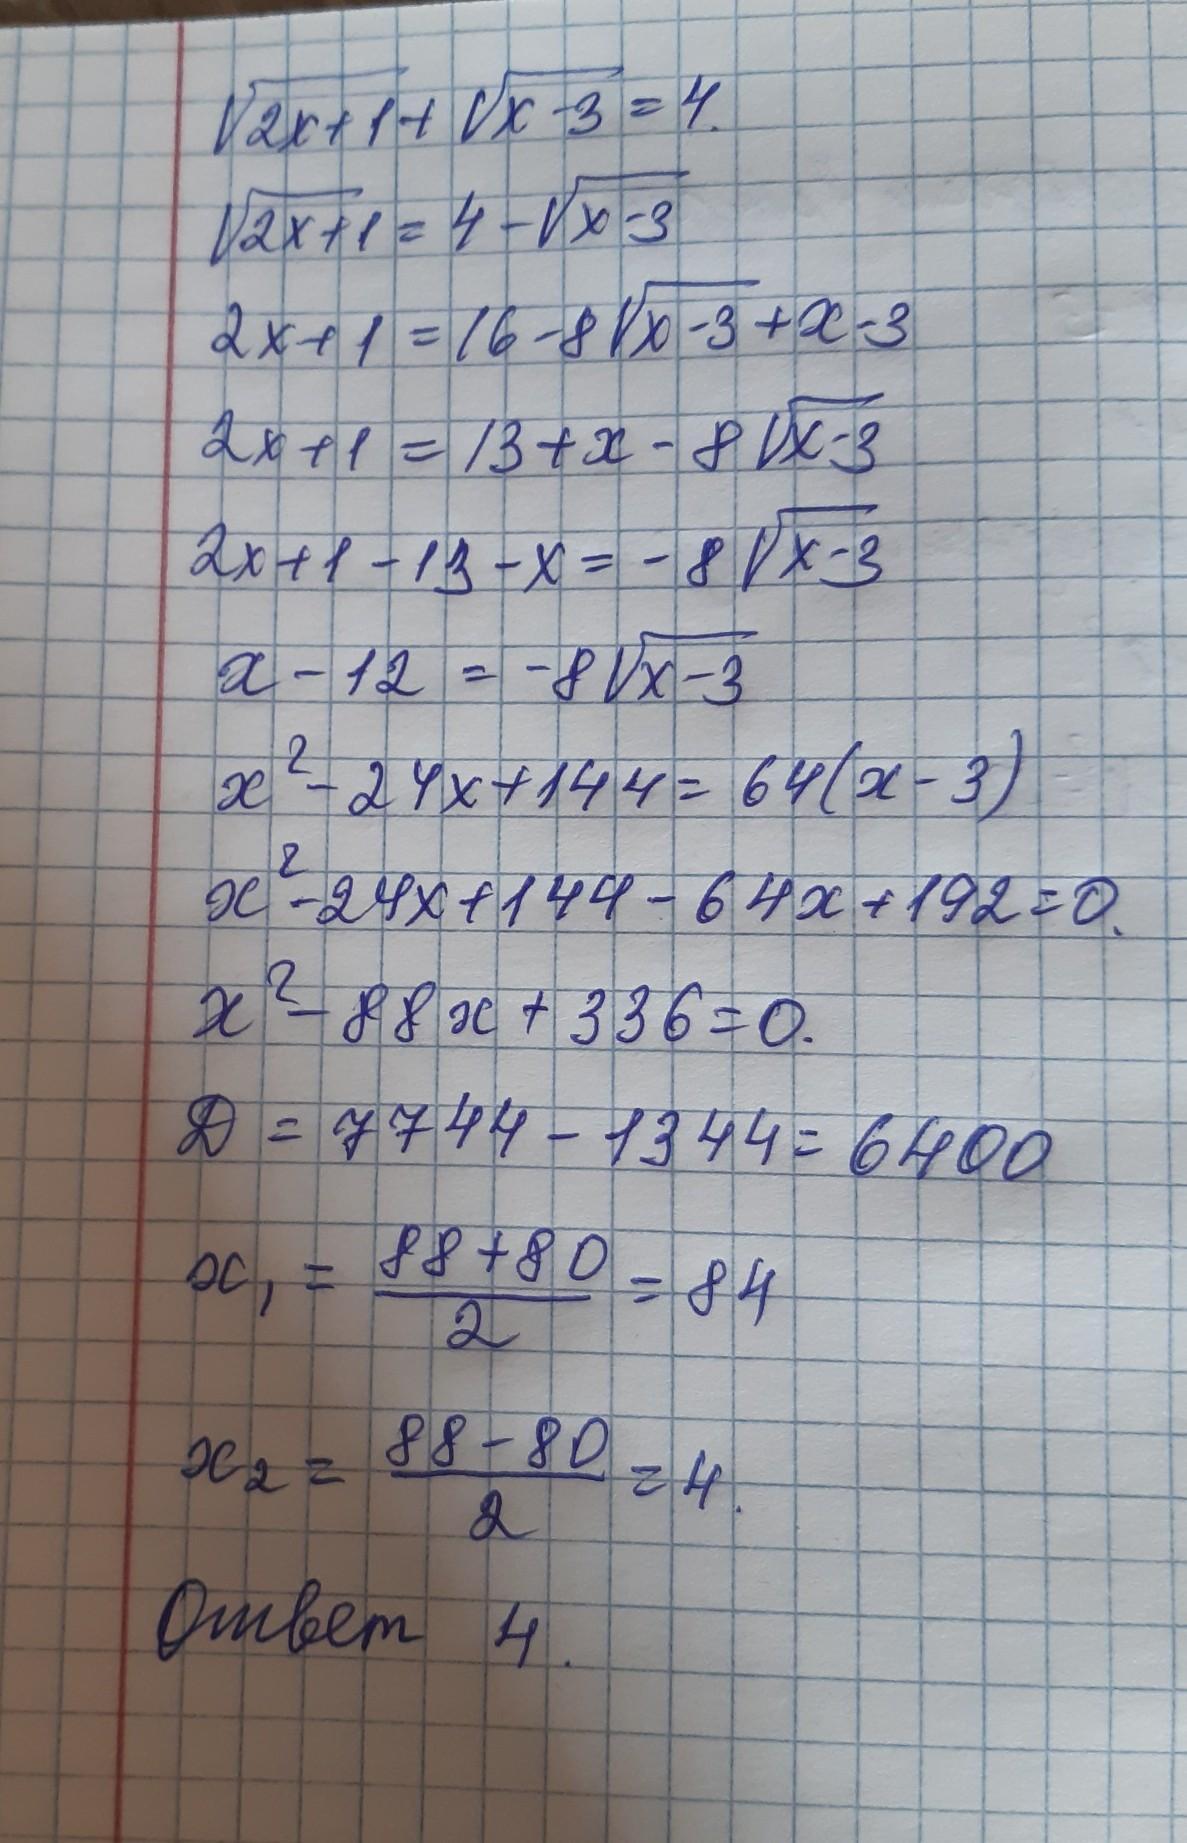 √2x+1 + √x-3 = 4.
√2x+1 = 4 - √x-3
2x+1 = 16 - 8√x-3 + x - 3
2x+1 = 13 + x - 8√x-3
2x+1 - 13 - x = - 8√x-3
x - 12 = -8√x-3
x² - 24x + 144 = 64(x - 3)
x² - 24x + 144 - 64x + 192 = 0.
x² - 88x + 336 = 0.
D = 7744 - 1344 = 6400
x₁ = (88+80)/2 = 84
x₂ = (88-80)/2 = 4.
Ответ 4.